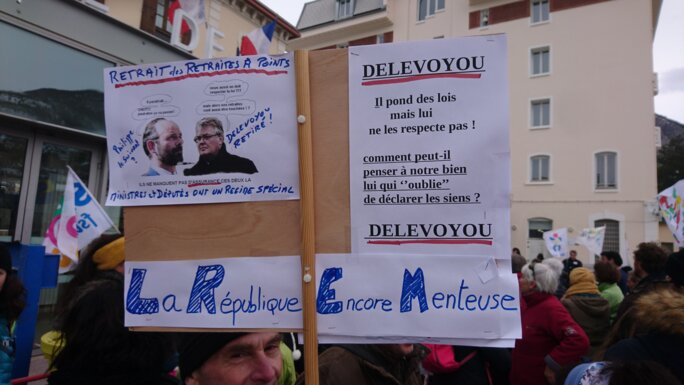 RETRAIT des RETRAITES À POINTS
Philippe
DELEVOYOU
RETIRÉ!
ILS NE MANQUENT PAS D'ASSURANCE CES DEUX LA
MINISTRES & DÉPUTÉS ONT UN REGIDE SPÉCIAL
DELEVOYOU
Il pond des lois
mais lui
ne les respecte pas !
comment peut-il
penser à notre bien
lui qui ‘’oublie’’
de déclarer les siens ?
DELEVOYOU
La République Encore Menteuse